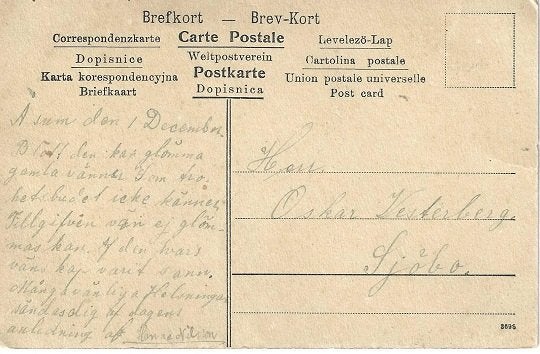 Brefkort — Brev-Kort
Correspondenzkarte Carte Postale Levelező-Lap
Dopisnice Weltpostverein Cartolina postale
Karta korespondencyjna Postkarte Union postale universelle
Briefkaart Dopisnica Post card
Åsum den 1 December.
Blott den kan glömma
gamla vänner som tro-
hetsbudet icke känner
Tillgifven vän ej glöm-
mas kan. If den hvars
vänskap varit sann.
Många vänliga Helsningar
sändes dig af dagens
anledning af Anna Nilsson
Herr.
Oskar Vesterberg.
Sjöbo.
3695